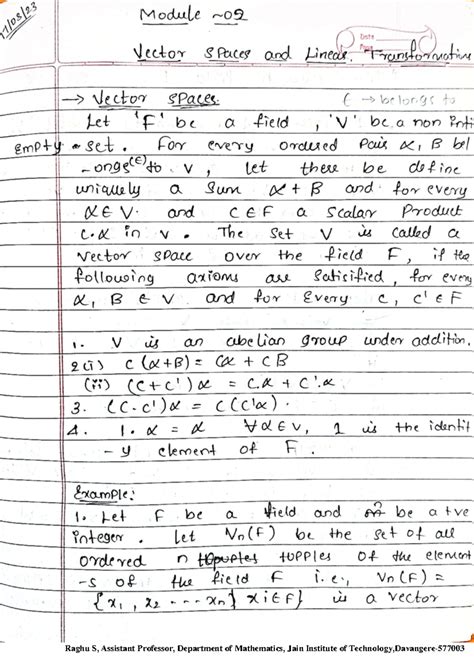 17/05/23
Module ~02
Date
Page
Vector spaces and Linear. Transformation
→ Vector spaces. ∈ → belongs to
Let 'F' be a field, 'V' be a non
empty set. For every ordered pair α, β bel
-ongs (∈) to V, let there be define
uniquely a sum α + β and for every
α ∈ V and c ∈ F a scalar product
c.α in V. The set V is called a
vector space over the field F, if the
following axioms are satisified, for every
α, β ∈ V and for Every c, c' ∈ F
1. V is an abelian group under addition.
2(i) c(α+β) = cα + cβ
(ii) (c+c')α = c.α + c'.α
3. (c.c')α = c(c'α).
4. 1.α = α ∀ α ∈ V, 1 is the identit
-y element of F.
Example:
1. Let F be a field and n be a +ve
integer. Let Vn(F) be the set of all
ordered n tupples of the element
-s of the field F i.e., Vn(F) =
{x1, x2 --- xn} xi∈F} is a vector
Raghu S, Assistant Professor, Department of Mathematics, Jain Institute of Technology,Davangere-577003